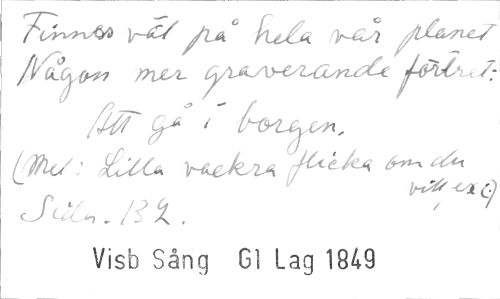 Finnes väl på hela vår planet
Någon mer graverande förtret:
Att gå i borgen.
(Mel: Lilla vackra flicka om du
vill, ex:)
Sidn. 132.
Visb Sång Gl Lag 1849